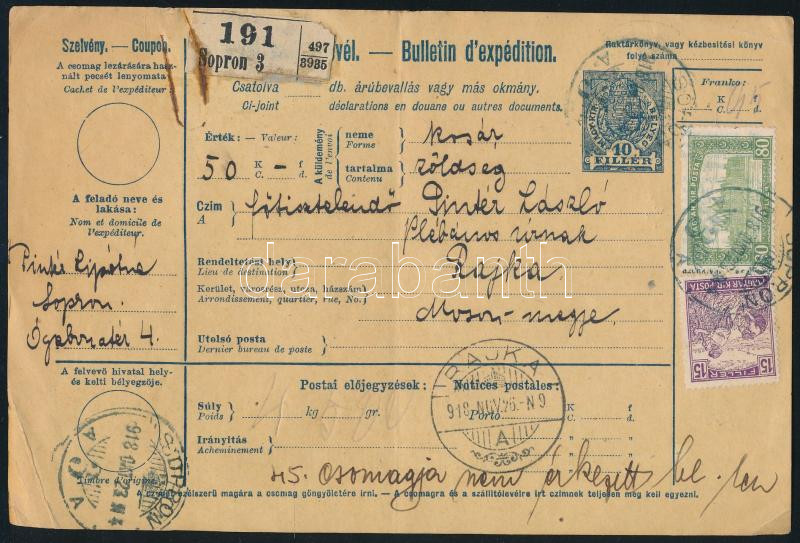 Szelvény. — Coupon.
A csomag lezárására hasz-
nált pecsét lenyomata
Cachet de l'expéditeur:
A feladó neve és
lakása:
Nom et domicile de
l'expéditeur.
Sopron.
A felvevő hivatal hely-
és kelti bélyegzője.
Timbre d'origine
191
Sopron 3
497
3985
vél. — Bulletin d'expédition.
Raktárkönyv, vagy kézbesítési könyv
folyó száma
Csatolva db. árúbevallás vagy más okmány.
Ci-joint déclarations en douane ou autres documents.
Franko:
K f
C. d.
MAGY. KIR. BÉLYEG
10
FILLÉR
Érték: - Valeur:
50 K – f
C. d.
A küldemény
de l'envoi
neme
Forme
kosár
tartalma
Contenu
zöldség
Czim
A
főtisztelendő Pintér László
Plébános úrnak
Rendeltetési hely:
Lieu de destination:
Rajka
Kerület, városrész, utcza, házszám
Arrondissement, quartier, rue, No.
Moson-megye
Utolsó posta
Dernier bureau de poste
Postai előjegyzések: Notices postales:
Súly
Poids
kg gr.
Porto
K f
C. d.
Irányítás
Acheminement
RAJKA
918 NOV. 26.-N 9
A
SOPRON
MAGYAR KIR. POSTA
80 80
MAGYAR KIR. POSTA
15 FILLÉR 15
csomagja nem érkezett be.
A czímet czélszerű magára a csomag göngyöletére írni. — A csomagra és a szállítólevélre írt czímnek teljesen meg kell egyezni.
darabanth